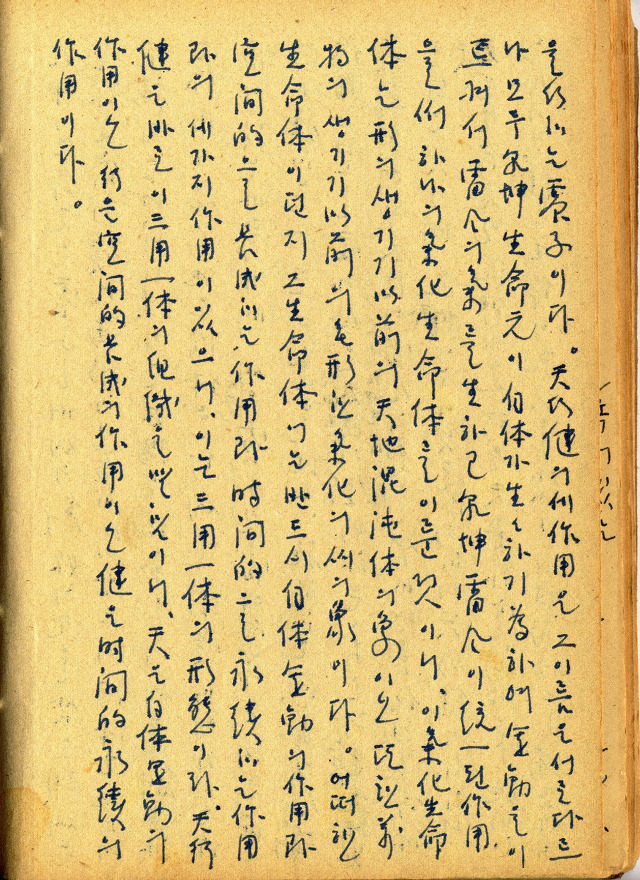 을 하는 震子이다。天行健의 세 作用은 그 이름은 서로 다르
나 모두 乾坤生命元이 自体가 生生하기 爲하여 運動을 이
르켜서 雷風의 氣를 生하고 乾坤雷風이 統一된 作用
을 하나의 氣化生命体를 이룬 것이니, 이 氣化生命
体는 形의 생기기 以前의 天地混沌体의 象이오 또한 萬
物의 생기기 以前의 無形한 氣化의 의 象이다。 어떠한
生命体이던지 그 生命体에는 반드시 自体運動의 作用과
空間的으로 長成하는 作用과 時間的으로 永續하는 作用
과의 세가지 作用이 있으니, 이는 三用一体의 形態이라, 天行
健은 바로 이 三用一体의 을 말함이니, 天은 自体運動의
作用이오 行은 空間的 長成의 作用이오 健은 时间的 永續의
作用이다。